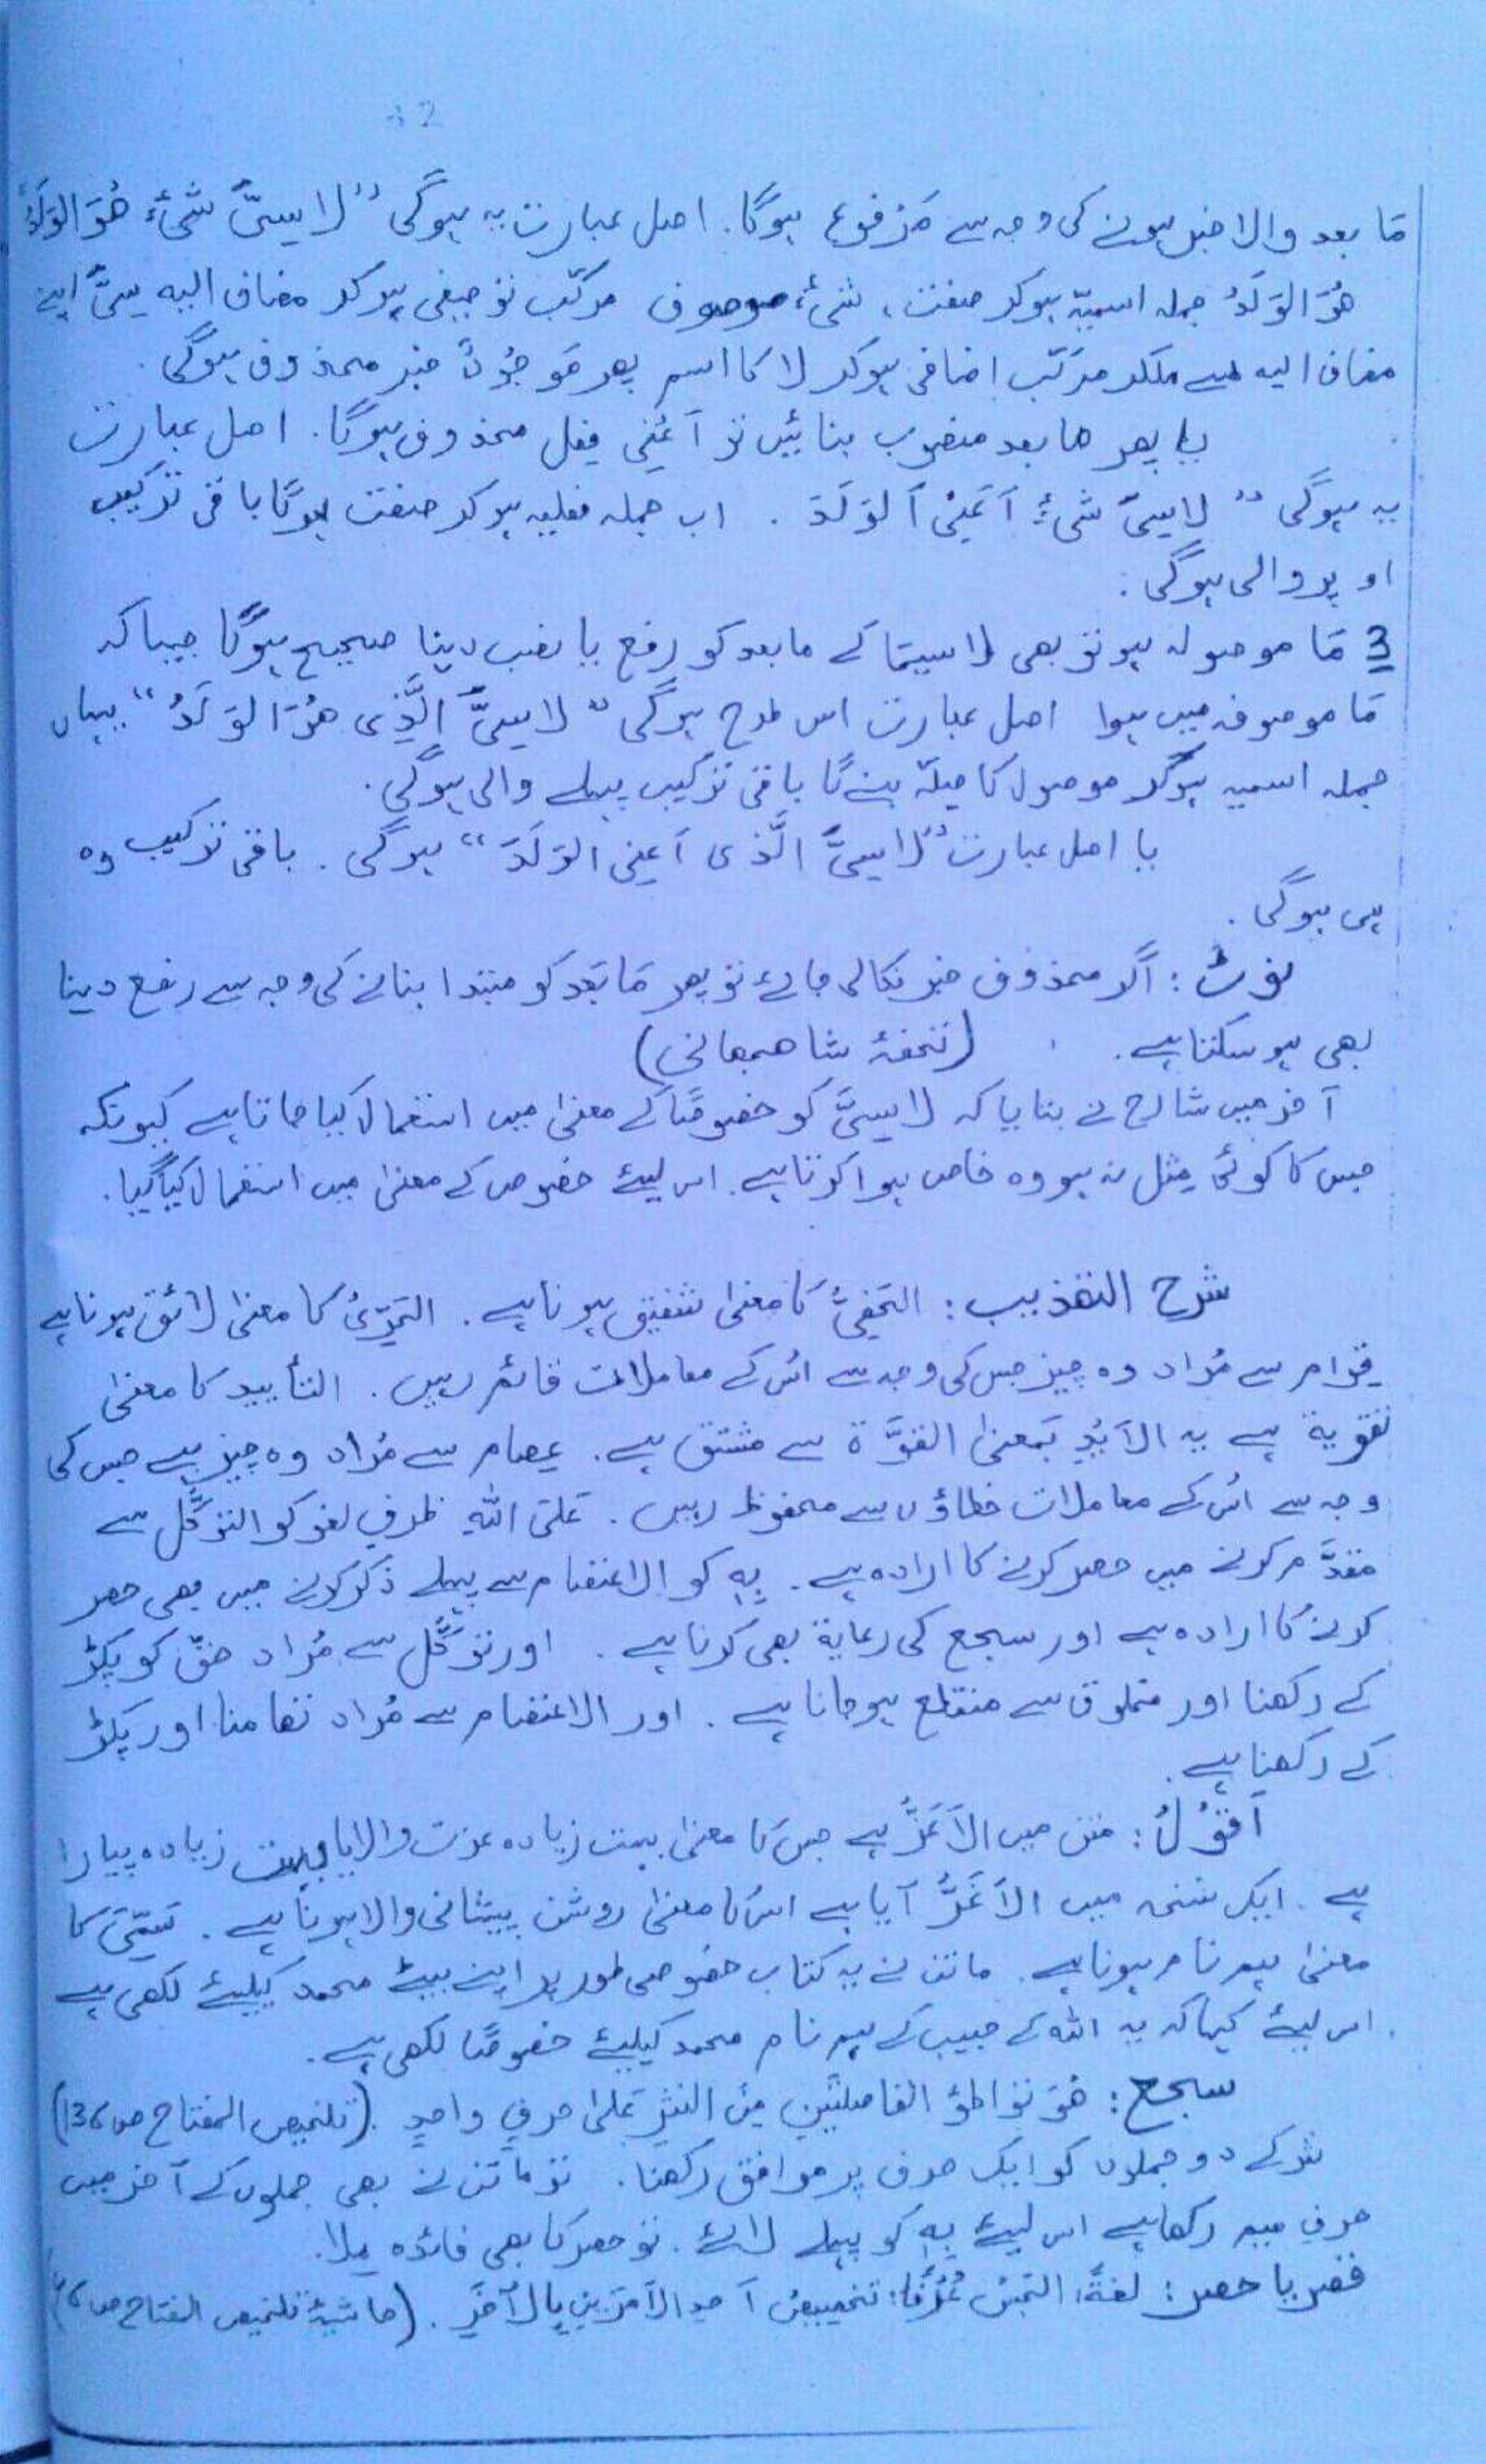 42
مَا بعد والا خبر ہونے کی وجہ سے مَرْفوع ہوگا. اصل عبارت یہ ہوگی "لا سِیَّ شَیْءٍ هُوَ الوَلَدُ"
هُوَ الوَلَدُ جملہ اسمیّہ ہوکر صفت، شیءٍ موصوف مرکّب توصیفی ہوکر مضاف الیہ سِیَّ اپنے
مضاف الیہ سے ملکر مرکّب اضافی ہوکر لا کا اسم پھر مَوْجُوْدٌ خبر محذوف ہوگی.
یا پھر مابعد منصوب بنائیں تو اَعْنِی فِعل محذوف ہوگا. اصل عبارت
یہ ہوگی " لا سِیَّ شَیْءٍ اَعْنِیْ اَلوَلَدَ . اب جملہ فعلیہ ہوکر صفت ہوگا باقی ترکیب
اوپر والی ہوگی.
3 مَا موصولہ ہو تو بھی لاسیمَا کے مابعد کو رفع یا نصب دینا صحیح ہوگا جیسا کہ
مَا موصوفہ میں ہوا اصل عبارت اس طرح ہوگی "لا سِیَّ الَّذِی هُوَ الوَلَدُ" یہاں
جملہ اسمیہ ہوکر موصول کا صِلَہ بنے گا باقی ترکیب پہلے والی ہوگی.
یا اصل عبارت "لَا سِیَّ الَّذی اَعنِی الوَلَدَ" ہوگی. باقی ترکیب وہ
ہی ہوگی.
نوٹ: اگر محذوف خبر نکالی جائے تو پھر مَا بَعد کو مبتدا بنانے کی وجہ سے رفع دینا
بھی ہو سکتا ہے. (تحفۂ شاھجھانی)
آخر میں شارح نے بتایا کہ لا سِیَّ کو خصوصًا کے معنیٰ میں استعمال کیا جاتا ہے کیونکہ
جس کا کوئی مِثل نہ ہو وہ خاص ہوا کرتا ہے. اس لیئے خصوص کے معنیٰ میں استعمال کیا گیا.
شرح التھذیب: الحَفِیُّ کا معنیٰ شفیق ہونا ہے. الحَرِیُّ کا معنیٰ لائق ہونا ہے
قِوام سے مُراد وہ چیز جس کی وجہ سے اُس کے معاملات قائم رہیں. التأیید کا معنیٰ
تقویة ہے یہ الاَیْدِ بَمعنیٰ القوَّة سے مشتق ہے. عِصام سے مُراد وہ چیز ہے جس کی
وجہ سے اُس کے معاملات خطاؤں سے محفوظ رہیں. عَلیَ اللّٰہِ ظرفِ لغو کو التوکُّل سے
مقدَّم کرنے میں حصر کرنے کا ارادہ ہے. بِہٖ کو الاعتصام سے پہلے ذکر کرنے میں بھی حصر
کرنے کا ارادہ ہے اور سجع کی رعایة بھی کرنا ہے. اور توکُّل سے مُراد حَقّ کو پکڑ
کے رکھنا اور مخلوق سے منقطع ہوجانا ہے. اور الاعتصام سے مُراد تھامنا اور پکڑ
کے رکھنا ہے.
اَقُوْلُ: متن میں الاَعَزُّ ہے جس کا معنیٰ بہت زیادہ عزت والا یا بہت زیادہ پیارا
ہے. ایک نسخہ میں الاَغَرُّ آیا ہے اس کا معنیٰ روشن پیشانی والا ہونا ہے. سَمِّیَ کا
معنیٰ ہم نام ہونا ہے. ماتن نے یہ کتاب خصوصی طور پر اپنے بیٹے محمد کیلئے لکھی ہے
اس لیئے کہا کہ یہ اللّٰہ کے حبیب کے ہم نام محمد کیلئے خصوصًا لکھی ہے.
سجع: هُوَ تواطؤ الفاصلتَینِ مِنَ النثرِ عَلیٰ حرفٍ واحدٍ. (تلخیص المفتاح ص136)
نثر کے دو جملوں کو ایک حرف پر موافق رکھنا. تو ماتن نے بھی جملوں کے آخر میں
حرفِ میم رکھا ہے اس لیئے بِہٖ کو پہلے لائے. تو حصر کا بھی فائدہ مِلا.
قصر یا حصر: لغةً: الحَبْسُ عُرْفًا: تخصیصُ اَحدِ الاَمْرَینِ بِالآخَرِ. (حاشیۂ تلخیص المفتاح